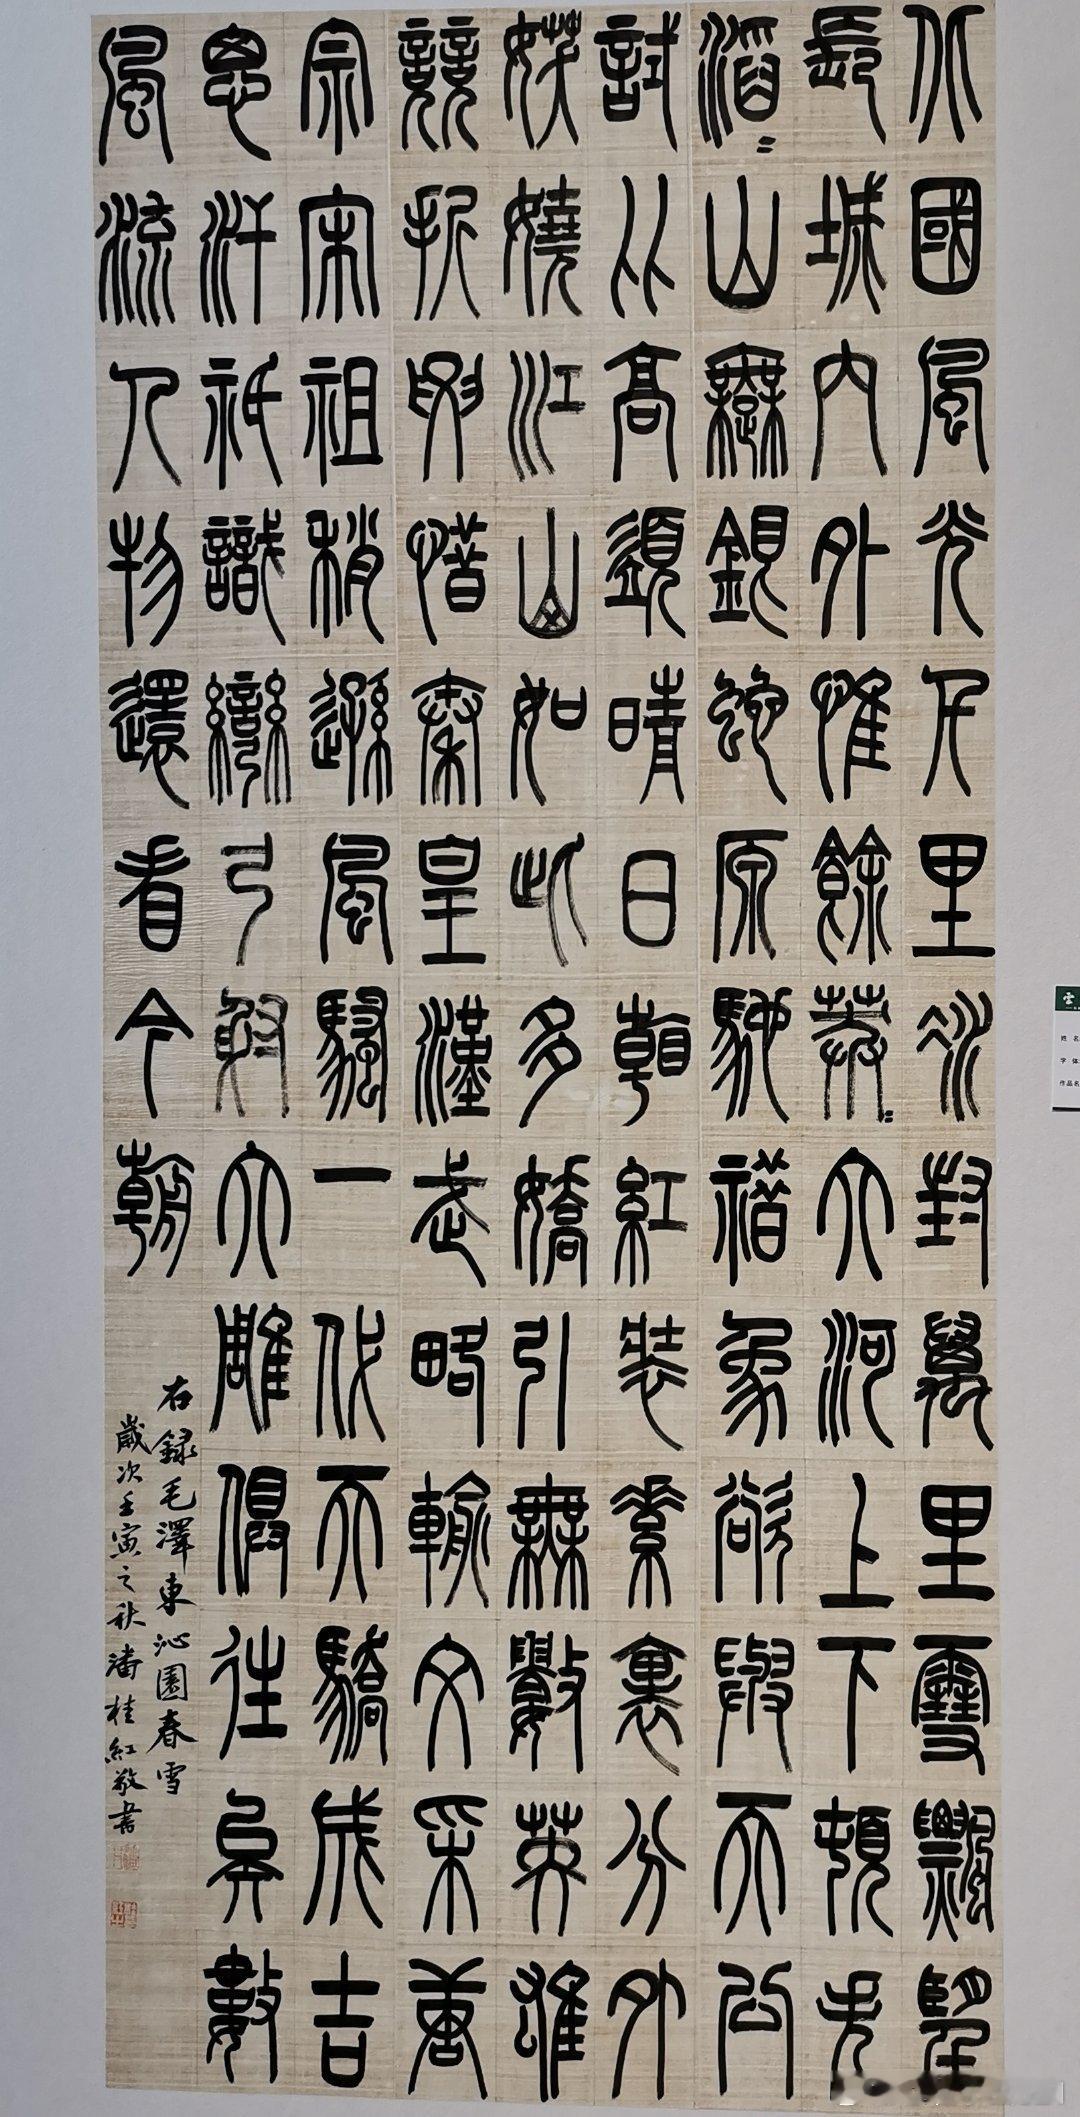 北國風光千里冰封萬里雪飄望
長城內外惟餘莽〻大河上下頓失
滔〻山舞銀蛇原馳蜡象欲與天公
試比高須晴日看紅裝素裹分外
妖嬈江山如此多嬌引無數英雄
競折腰惜秦皇漢武略輸文采唐
宗宋祖稍遜風騷一代天驕成吉
思汗祇識彎弓射大雕俱往矣數
風流人物還看今朝
右錄毛澤東沁園春雪
歲次壬寅之秋潘桂紅敬書
姓名
字体
作品名